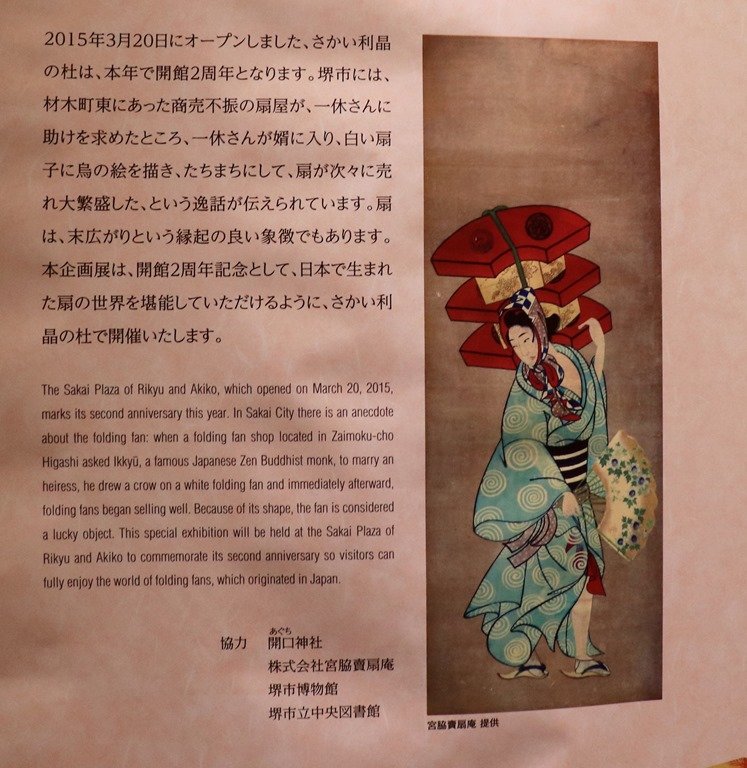 2015年3月20日にオープンしました、さかい利晶
の杜は、本年で開館2周年となります。堺市には、
材木町東にあった商売不振の扇屋が、一休さんに
助けを求めたところ、一休さんが婿に入り、白い扇
子に烏の絵を描き、たちまちにして、扇が次々に売
れ大繁盛した、という逸話が伝えられています。扇
は、末広がりという縁起の良い象徴でもあります。
本企画展は、開館2周年記念として、日本で生まれ
た扇の世界を堪能していただけるように、さかい利
晶の杜で開催いたします。
The Sakai Plaza of Rikyu and Akiko, which opened on March 20, 2015,
marks its second anniversary this year. In Sakai City there is an anecdote
about the folding fan: when a folding fan shop located in Zaimoku-cho
Higashi asked Ikkyū, a famous Japanese Zen Buddhist monk, to marry an
heiress, he drew a crow on a white folding fan and immediately afterward,
folding fans began selling well. Because of its shape, the fan is considered
a lucky object. This special exhibition will be held at the Sakai Plaza of
Rikyu and Akiko to commemorate its second anniversary so visitors can
fully enjoy the world of folding fans, which originated in Japan.
あぐち
協力 開口神社
株式会社宮脇賣扇庵
堺市博物館
堺市立中央図書館
宮脇賣扇庵 提供